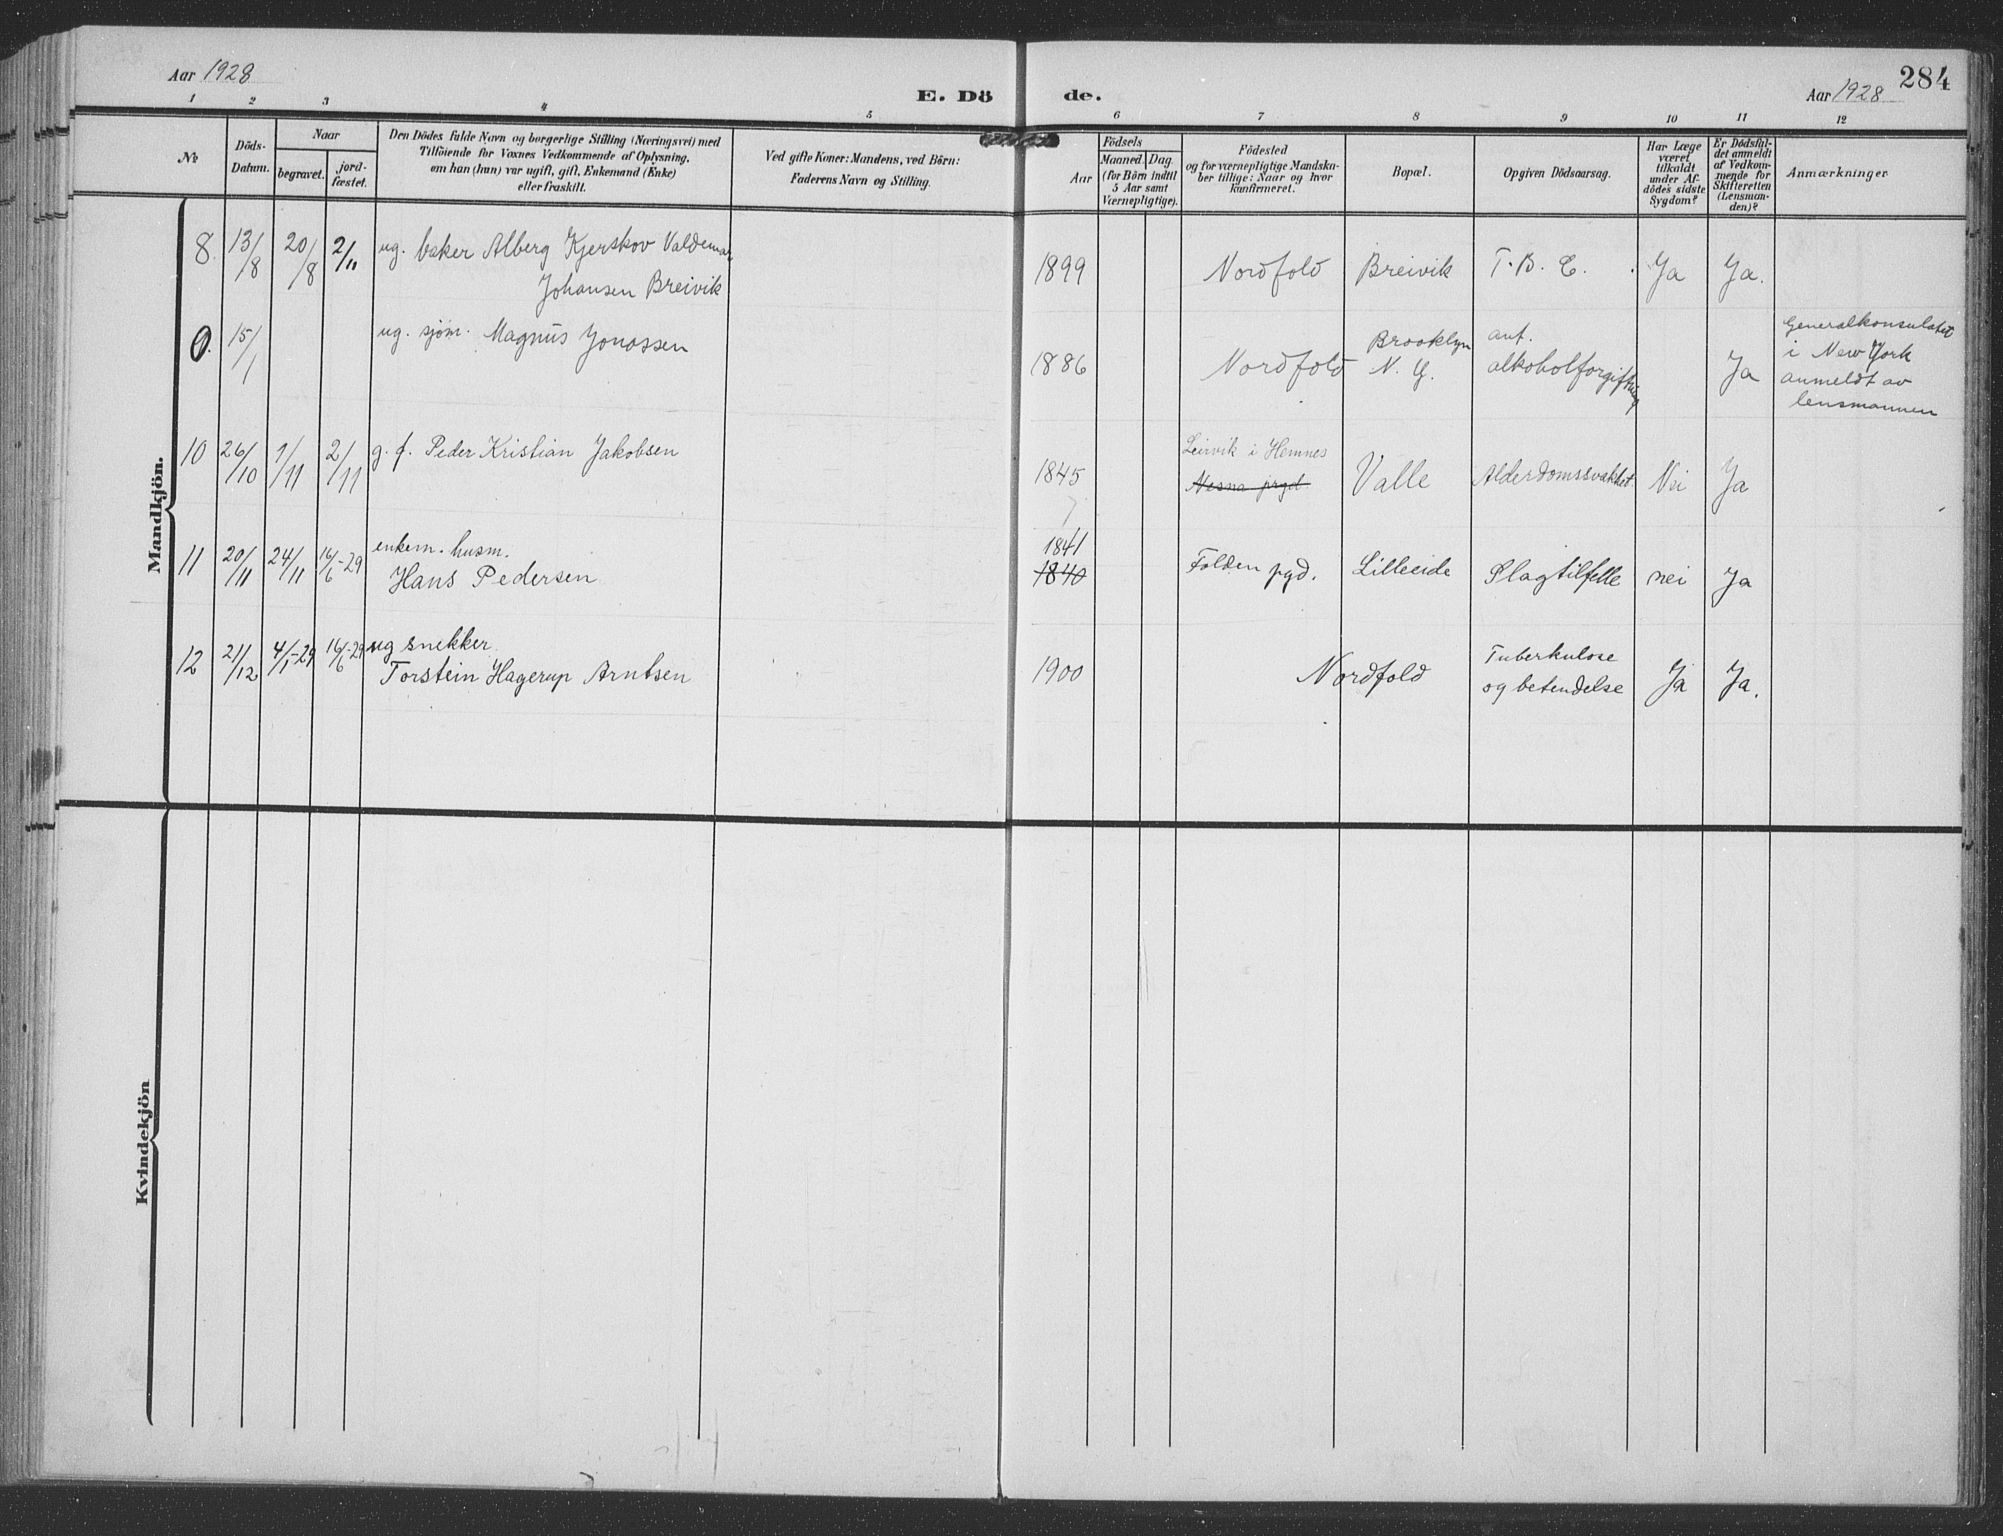 Aar 1928
E. Dö de.
Aar 1928
284
1 2 3 4 5 6 7 8 9 10 11 12
No
Döds-
Datum.
Naar
begravet.
jord-
fæstet.
Den Dödes fulde Navn og borgerlige Stilling (Næringsvei) med
Tilföiende for Voxnes Vedkommende af Oplysning,
om han (hun) var ugift, gift, Enkemand (Enke)
eller fraskilt.
Ved gifte Koner: Mandens, ved Börn:
Faderens Navn og Stilling.
Födsels
Aar
Maaned.
Dag.
(for Börn indtil
5 Aar samt
Værnepligtige).
Födested
og for værnepligtige Mandska-
ber tillige: Naar og hvor
konfirmeret.
Bopæl.
Opgiven Dödsaarsag.
Har Læge
været
tilkaldt
under Af-
dödes sidste
Sygdom?
Er Dödsfal-
det anmeldt
af Vedkom-
mende for
Skifteretten
(Lensman-
den)?
Anmærkninger
Mandkjön.
8. 13/8 20/8 2/11 ug. baker Alberg Kjerskov Valdemar
Johansen Breivik
1899 Nordfold Breivik T.B.C. Ja Ja.
9. 15/1 ug. sjøm. Magnus Jonassen
1886 Nordfold
Brooklyn
N. Y.
ant.
alkoholforgiftning
Ja
Generalkonsulatet
i New York
anmeldt av
lensmannen
10 26/10 1/11 2/11 g. f. Peder Kristian Jakobsen
1845
Leirvik i Hemnes
Nesna prgd.
Valle Alderdomssvakhet Nei Ja
11 20/11 24/11 16/6-29 enkem. husm.
Hans Pedersen
1841
1840
Folden pgd. Lilleeide Slagtilfelle nei Ja
12 21/12 4/1-29 16/6-29 ug snekker
Torstein Hagerup Arntsen
1900 Nordfold
Tuberkulose
og betendelse
Ja Ja.
Kvindekjön